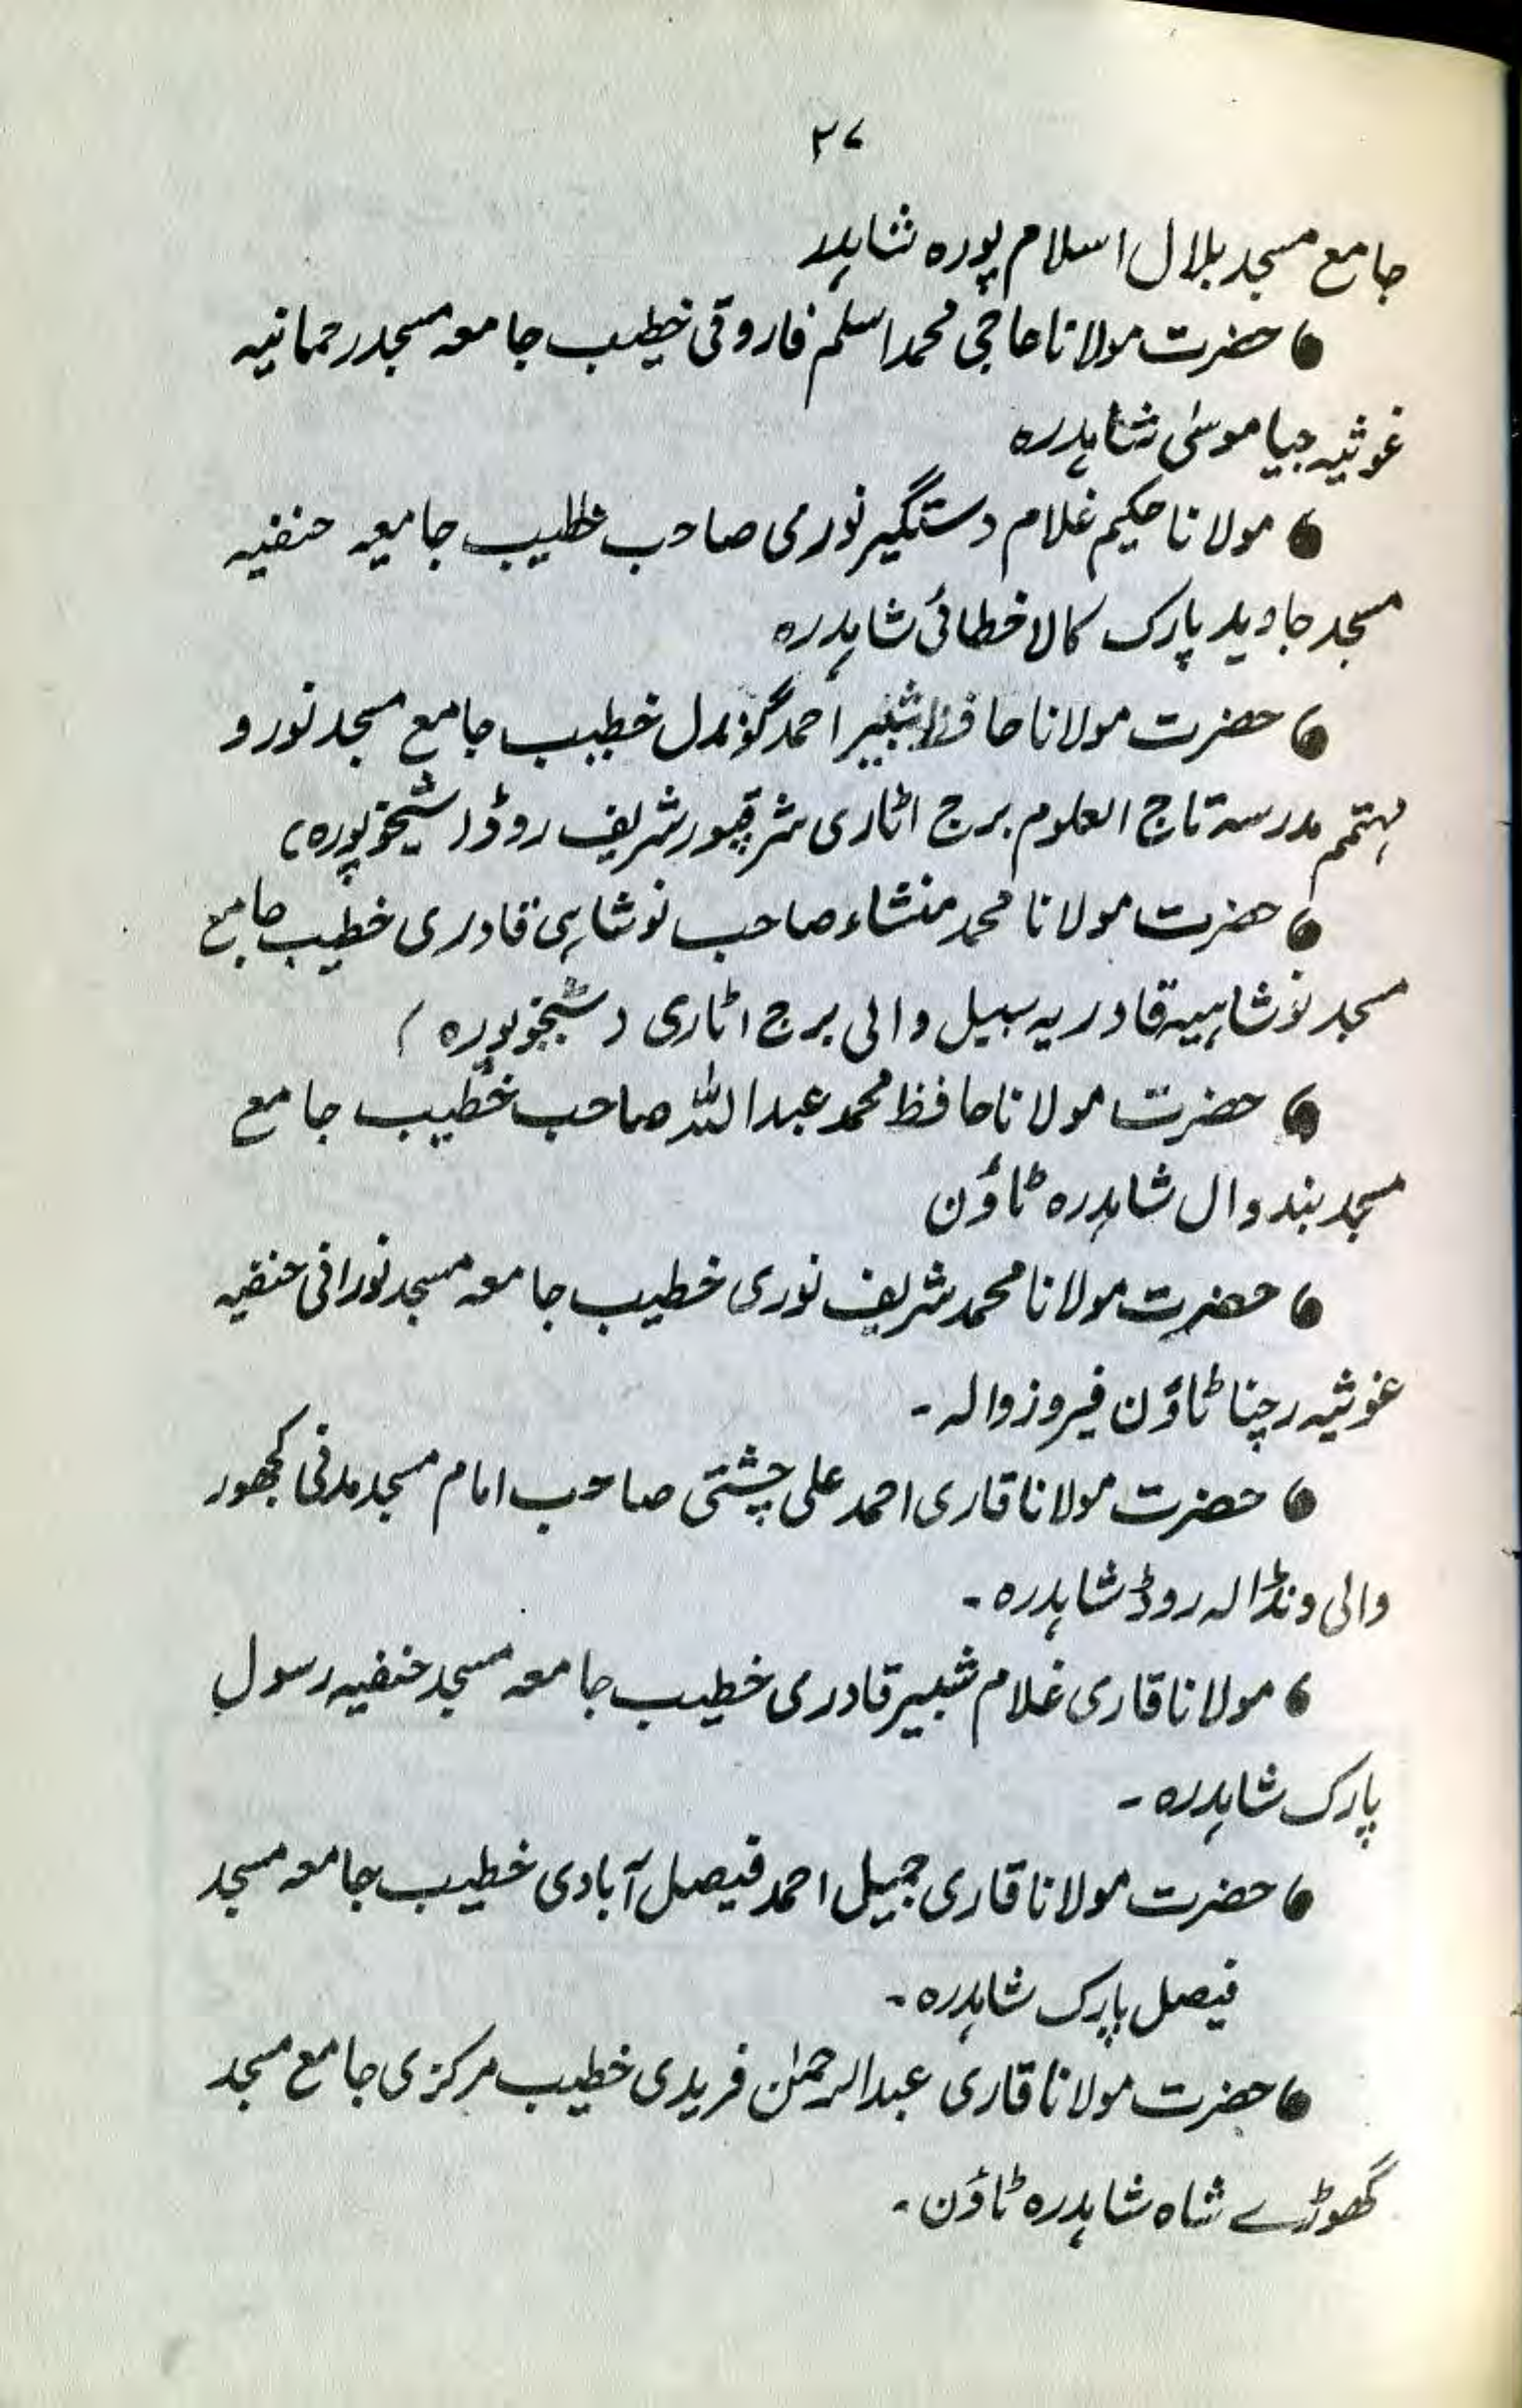 ۲۷
جامع مسجد بلال اسلام پورہ شاہدر
● حضرت مولانا حاجی محمد اسلم فاروقی خطیب جامعہ مسجد رحمانیہ
غوثیہ جیا موسیٰ شاہدرہ
● مولانا حکیم غلام دستگیر نوری صاحب خطیب جامعہ حنفیہ
مسجد جاوید پارک کالا خطائی شاہدرہ
● حضرت مولانا حافظ شبیر احمد گوندل خطیب جامع مسجد نور و
مہتمم مدرسہ تاج العلوم برج اٹاری شرقپور شریف روڈ (شیخوپورہ)
● حضرت مولانا محمد منشاء صاحب نوشاہی قادری خطیب جامع
مسجد نوشاہیہ قادریہ سبیل والی برج اٹاری (شیخوپورہ)
● حضرت مولانا حافظ محمد عبداللہ صاحب خطیب جامع
مسجد بندوال شاہدرہ ٹاؤن
● حضرت مولانا محمد شریف نوری خطیب جامعہ مسجد نورانی حنفیہ
غوثیہ رچنا ٹاؤن فیروزوالہ۔
● حضرت مولانا قاری احمد علی چشتی صاحب امام مسجد مدنی کھجور
والی ونڈالہ روڈ شاہدرہ۔
● مولانا قاری غلام شبیر قادری خطیب جامعہ مسجد حنفیہ رسول
پارک شاہدرہ۔
● حضرت مولانا قاری جمیل احمد فیصل آبادی خطیب جامعہ مسجد
فیصل پارک شاہدرہ۔
● حضرت مولانا قاری عبدالرحمٰن فریدی خطیب مرکزی جامع مسجد
گھوڑے شاہ شاہدرہ ٹاؤن۔